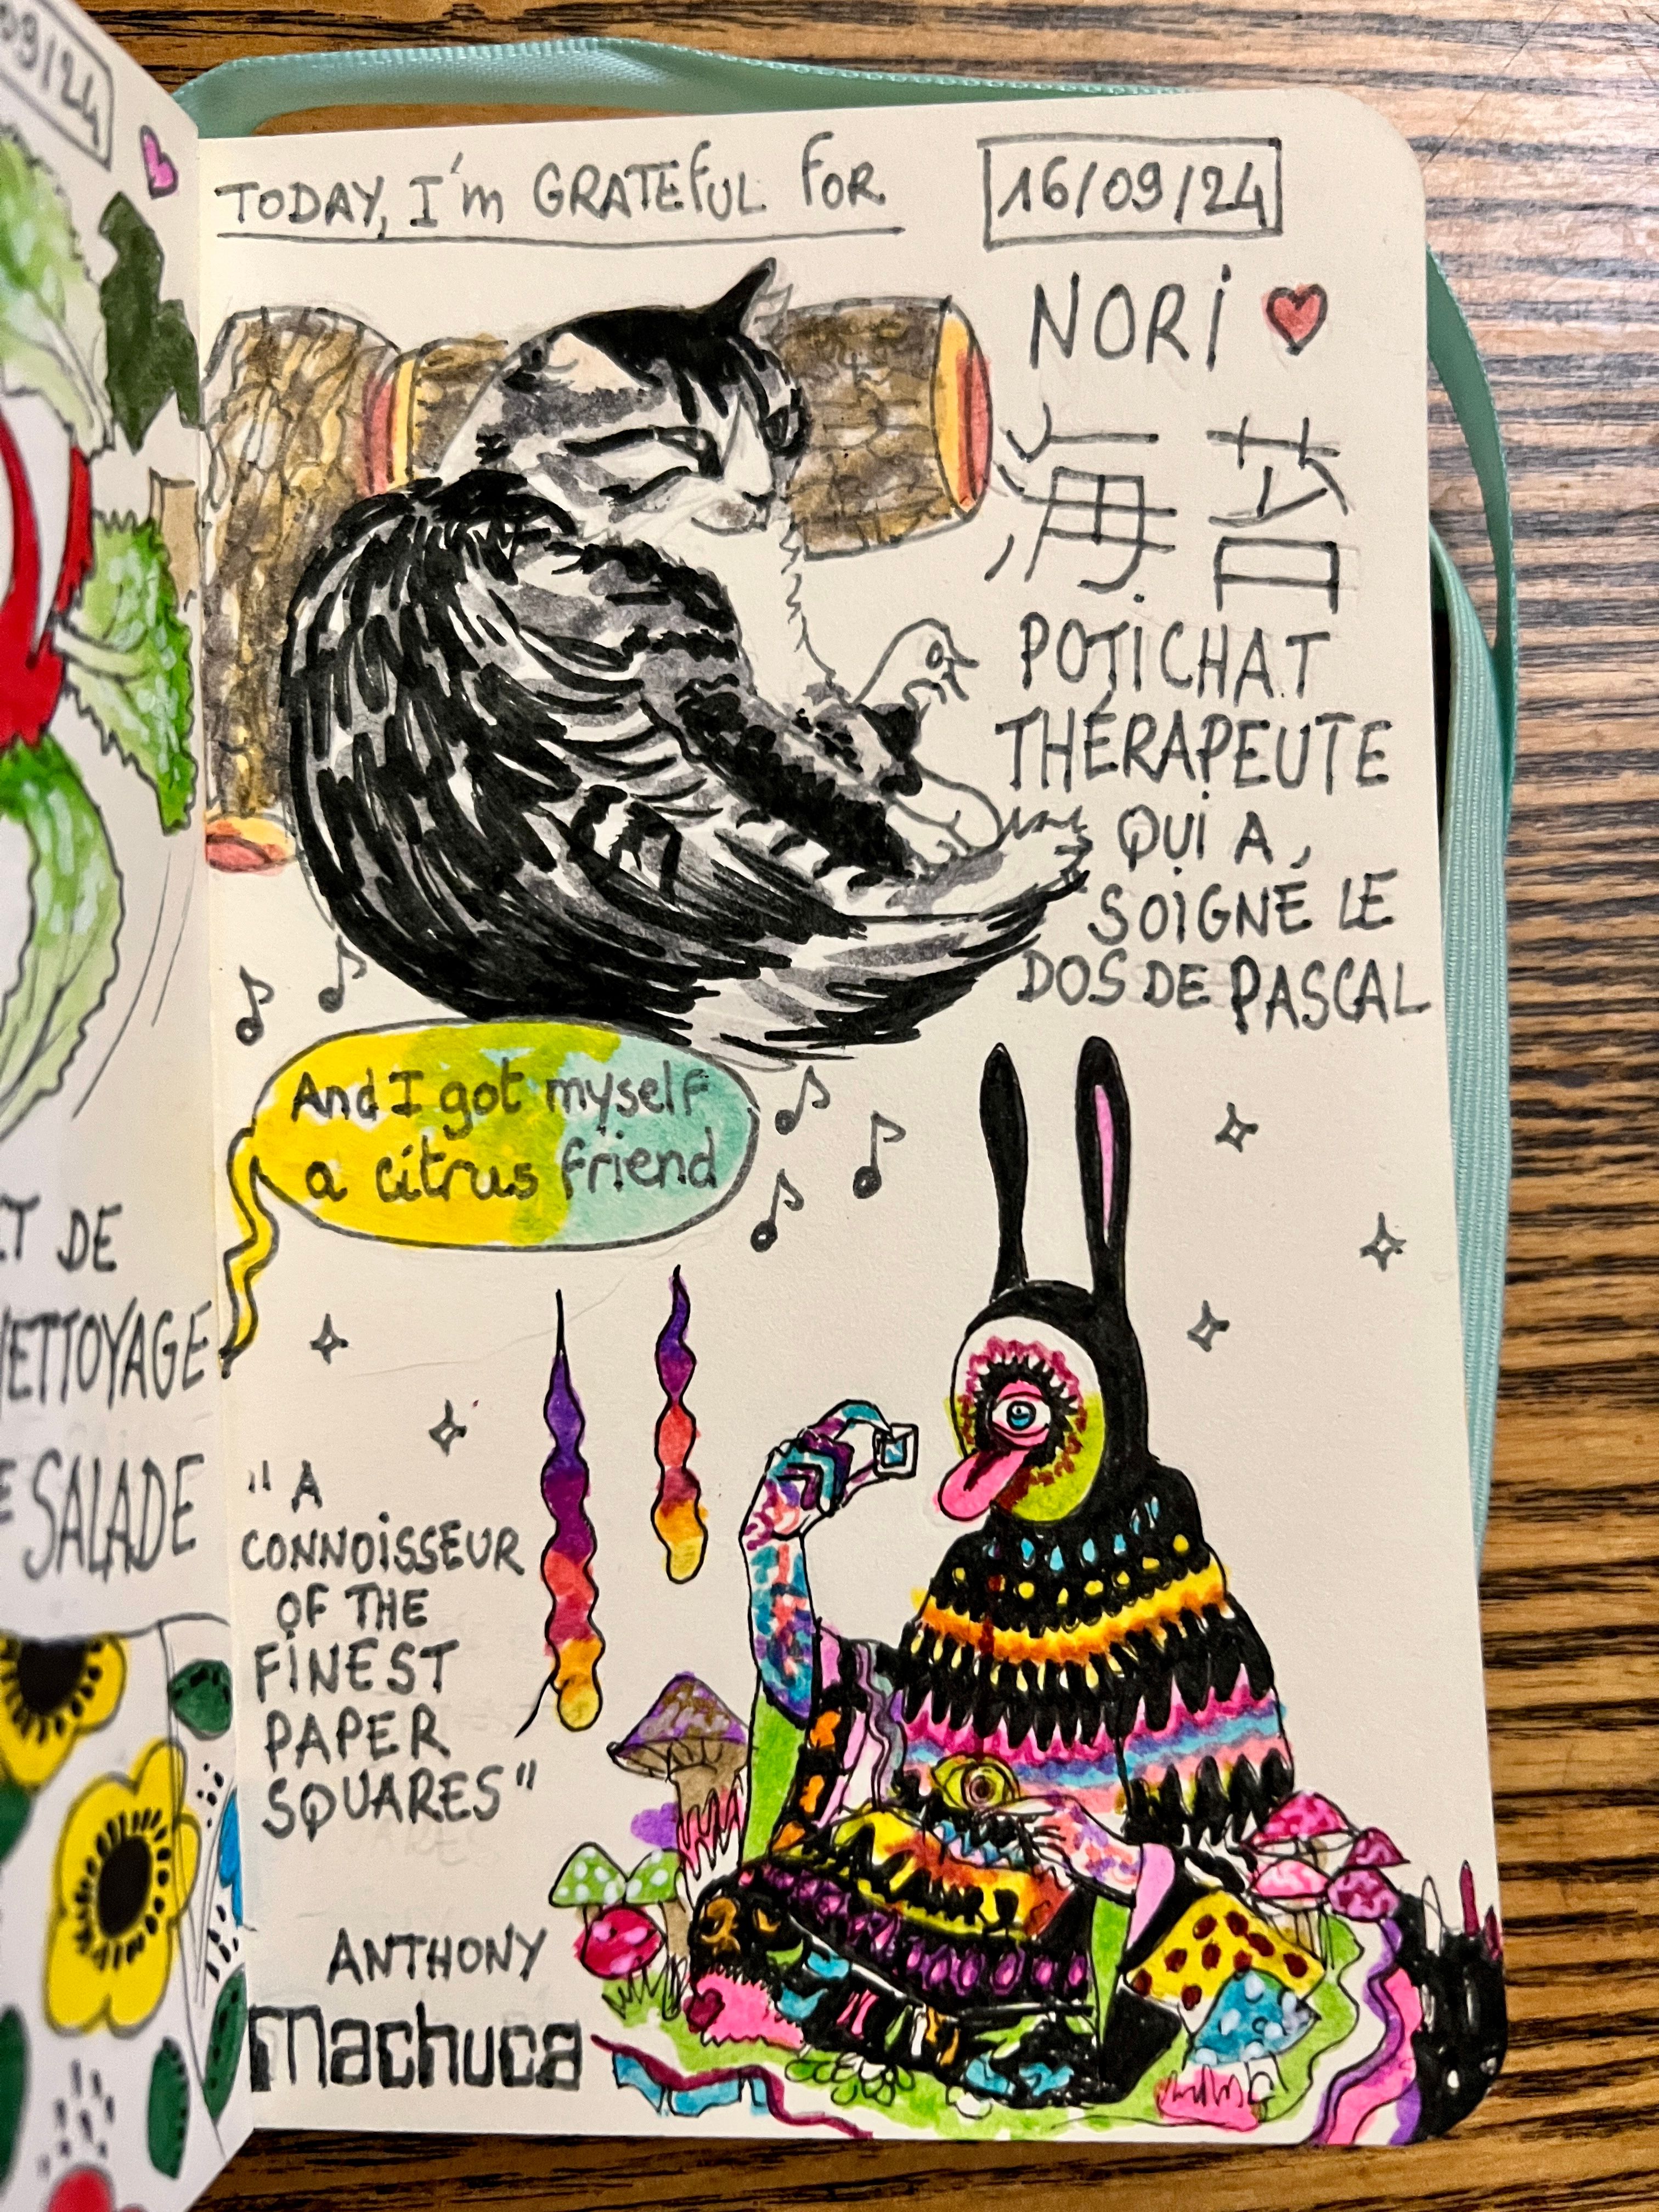 09/24
TODAY, I'm GRATEFUL FOR
16/09/24
NORI
海苔
POTICHAT
THÉRAPEUTE
QUI A
SOIGNÉ LE
DOS DE PASCAL
And I got myself
a citrus friend
"A
CONNOISSEUR
OF THE
FINEST
PAPER
SQUARES"
ANTHONY
Machuca
ET DE
NETTOYAGE
SALADE